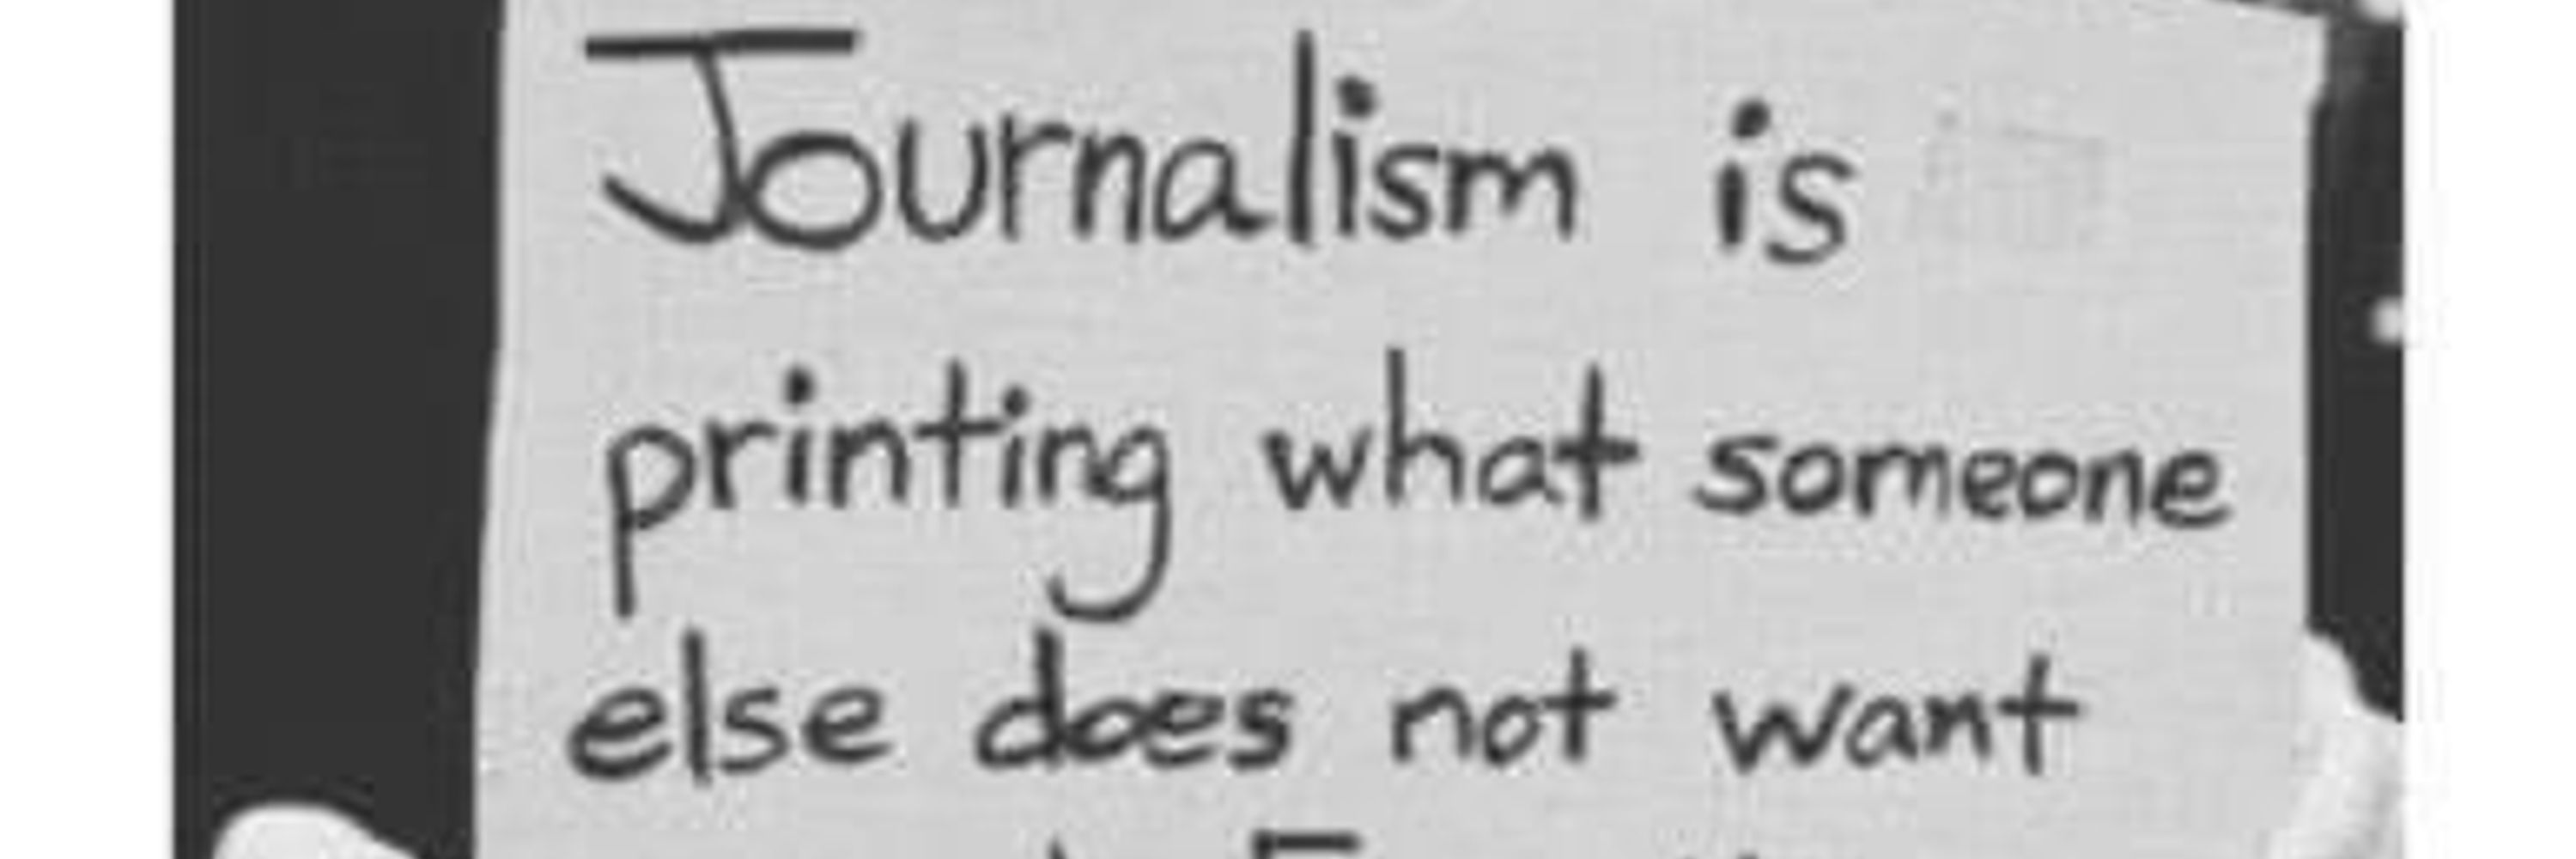 Journalism is
printing what someone
else does not want